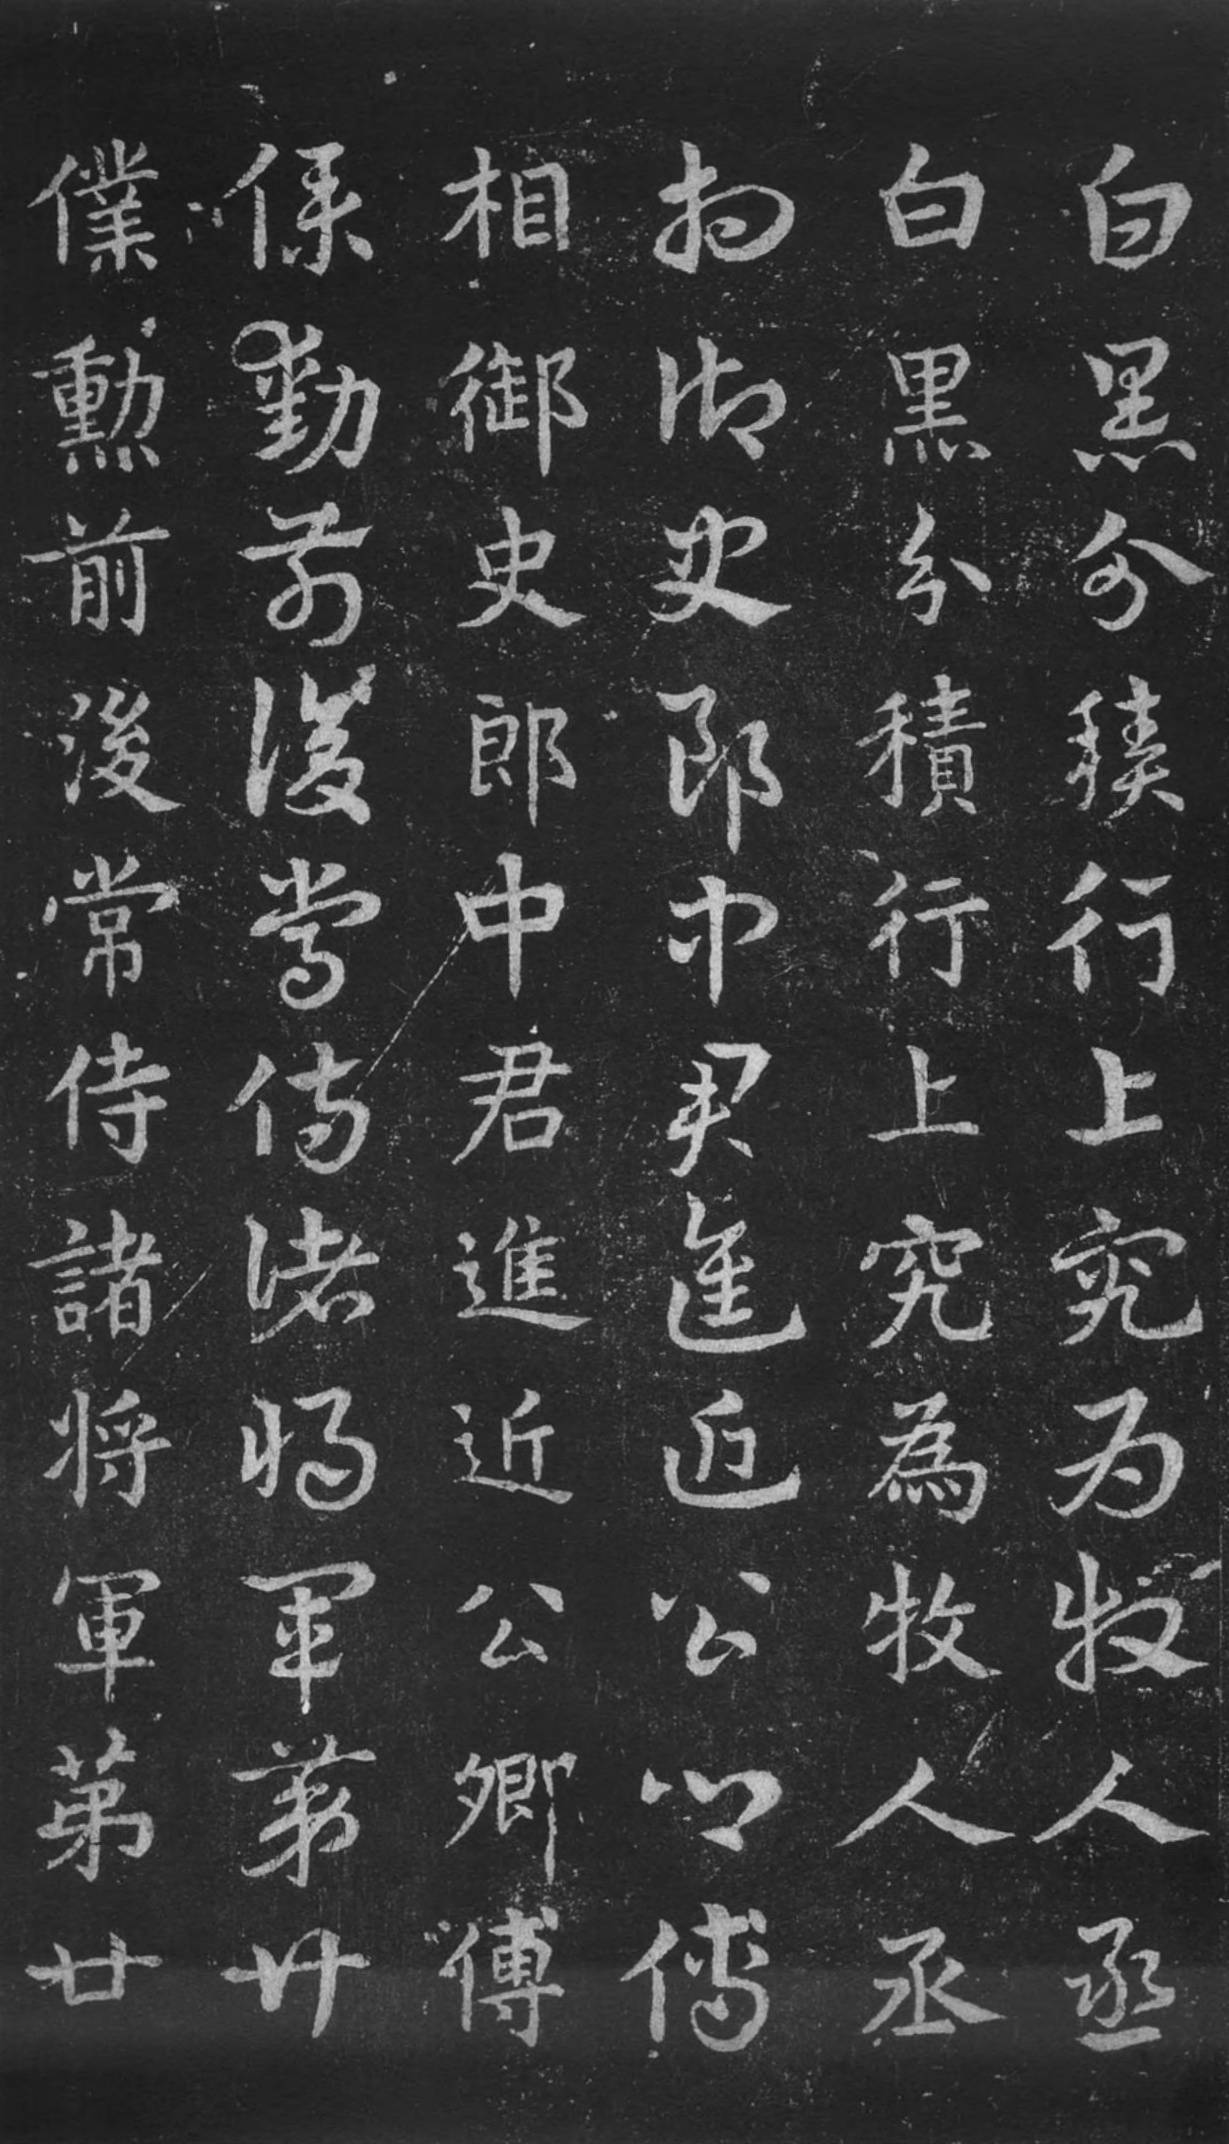 白黑分積行上究為牧人丞
白黑分積行上究為牧人丞
相御史郎中君進近公卿傅
相御史郎中君進近公卿傅
僕勳前後常侍諸將軍第廿
僕勳前後常侍諸将軍苐廿